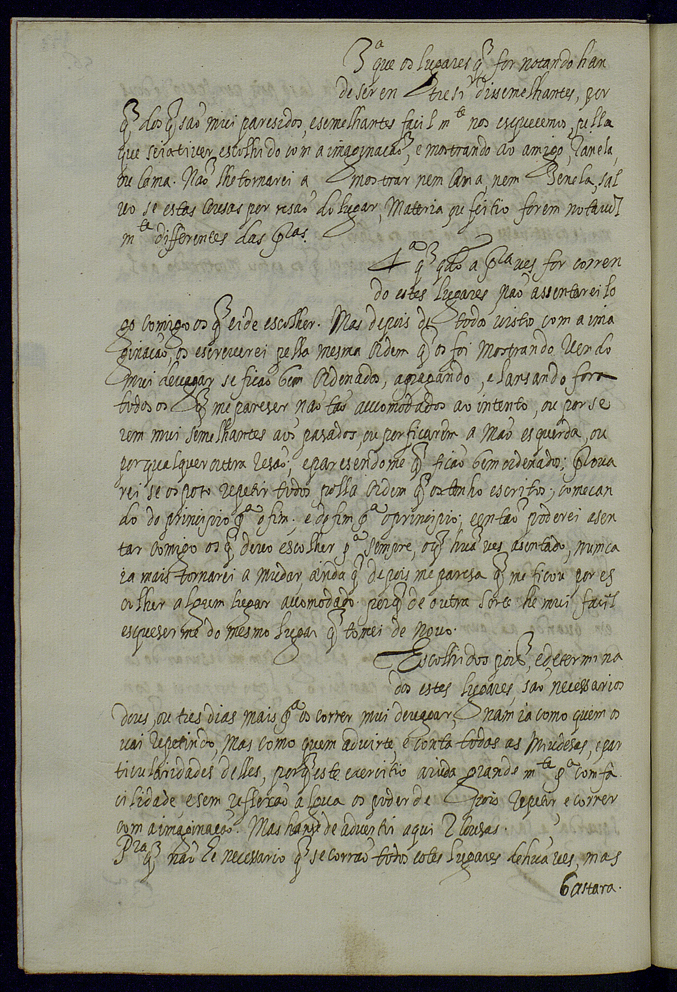 3.ª que os lugares q̃ for notando han
de ser en tre si m.tº dissemelhantes, por
q̃ dos q̃ saõ mui paresidos, e semelhantes facil m.te nos esquecemos, pella
que se ia tiver escolhido com a imaginacaõ, e mostrando ao amigo, Janela,
ou Cama. Naõ lhe tornarei a mostrar nem Cama, nem Jenela, sal
vo se estas Cousas por resaõ do lugar, Materia ou feitio forem notavel
m.te differentes das p.ras.
4.ª q̃ q.do a p.ra ves for corren
do estes lugares naõ assentarei lo
go comigo os q̃ ei de escolher. Mas depois de todo visto com a ima
ginacaõ, os escreverei pella mesma Ordem q̃ os foi Mostrando Vendo
mui devagar se ficaõ bem Ordenados, apagando, e lansando fora
todos os q̃ me pareser naõ taõ accomodados ao intento, ou por se
rem mui semelhantes aos pasados, ou por ficarem a Maõ esquerda, ou
por qualquer outra Resaõ, e paresendome q̃ ficaõ bem ordenados; prova
rei se os poso repetir todos polla Ordem q̃ os tenho escritos; comecan
do do principio p.ª o fim. e do fim p.ª o principio, e entaõ poderei asen
tar comigo os q̃ devo escolher p.ª sempre, o q̃ hua ves asentado, nunca
ia mais tornarei a mudar ainda q̃ depois me paresa q̃ me ficou por es
colher algum lugar accomodado porq̃ de outra sorte he mui facil
esqueser me do mesmo lugar q̃ tomei de Novo.
Escolhidos pois, e determina
dos estes lugares, saõ necessarios
dous, ou tres dias mais p.ª os correr mui devagar, naõ ia como quem os
vai Repetindo, Mas como quem advirte, e conta todas as Miudesas, e par
ticularidades delles, porq̃ este exercitio aiuda grande m.te p.ª com fa
cilidade e sem reflecaõ algua os poder depois Repetir e correr
com a imaginacaõ. Mas hanse de advertir aqui 2 Cousas.
P.ra q̃ naõ he necessario q̃ se corraõ todos estes lugares de hua ves, mas
bastara.